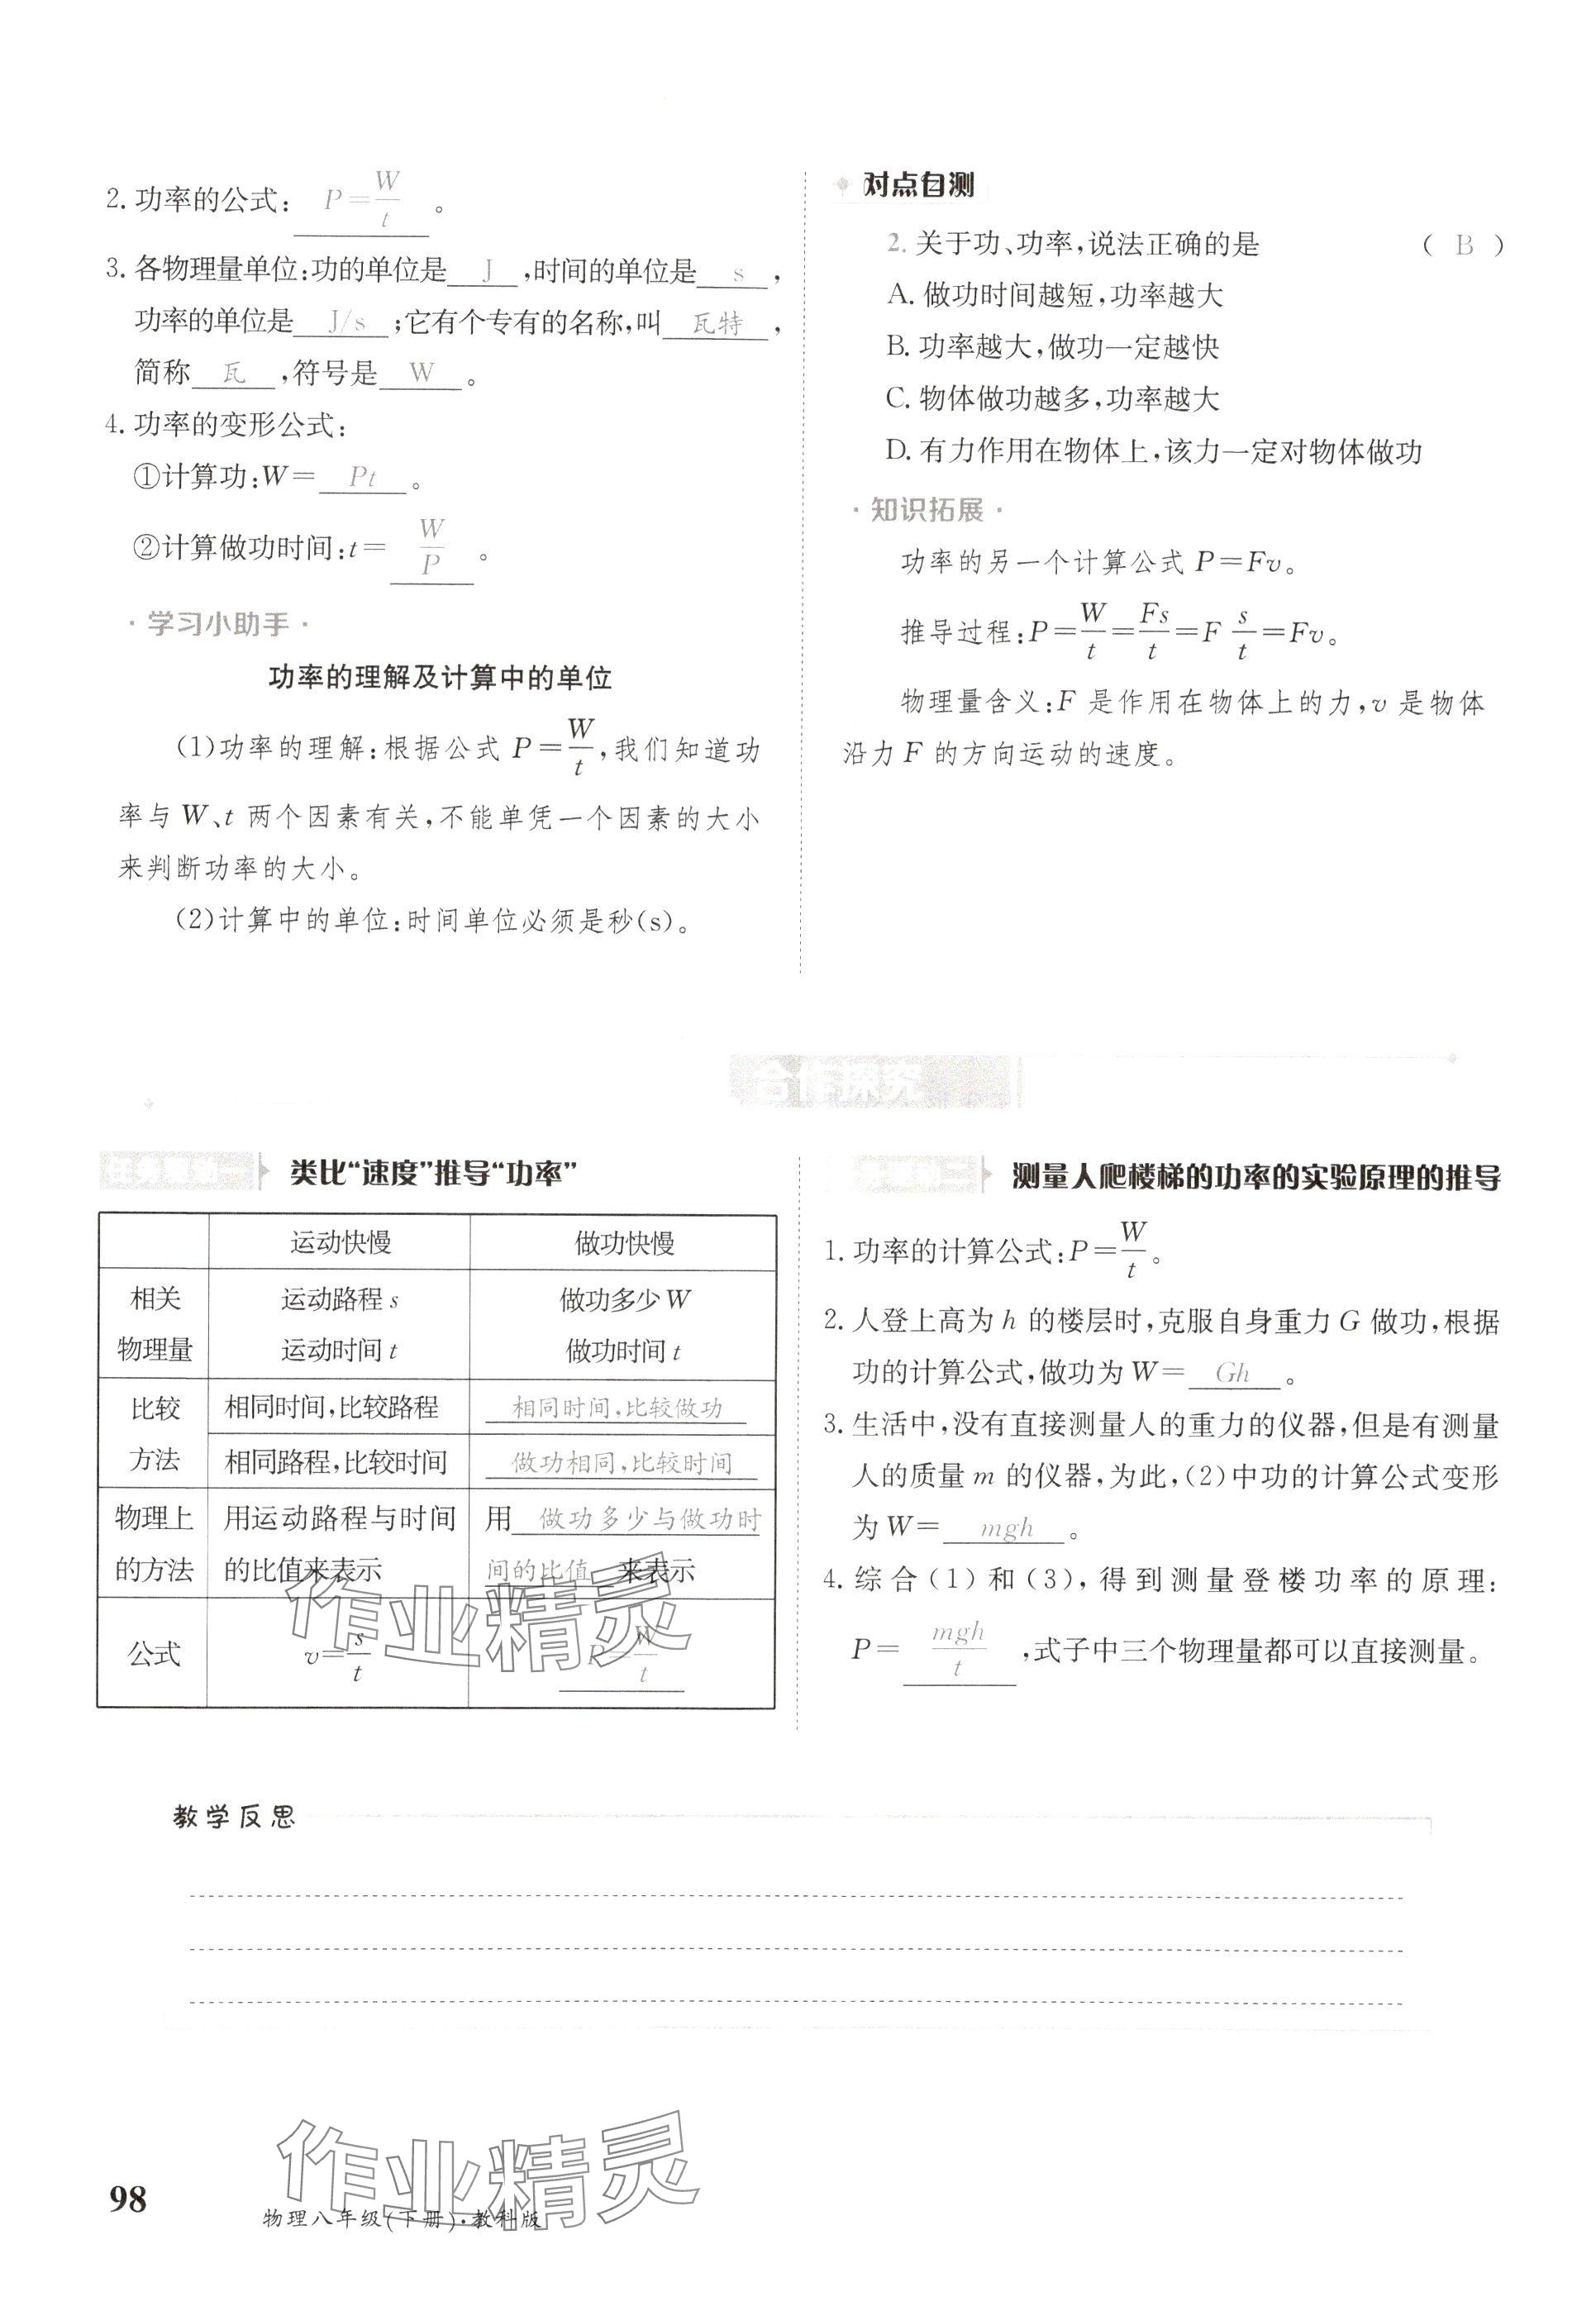 2. 功率的公式: P=W/t 。
3. 各物理量单位:功的单位是 J ,时间的单位是 s ,
功率的单位是 J/s ;它有个专有的名称,叫 瓦特 ,
简称 瓦 ,符号是 W 。
4. 功率的变形公式:
①计算功:W= Pt 。
②计算做功时间:t= W/P 。
·学习小助手·
功率的理解及计算中的单位
(1)功率的理解:根据公式 P=W/t,我们知道功
率与 W、t 两个因素有关,不能单凭一个因素的大小
来判断功率的大小。
(2)计算中的单位:时间单位必须是秒(s)。
对点自测
2. 关于功、功率,说法正确的是 ( B )
A. 做功时间越短,功率越大
B. 功率越大,做功一定越快
C. 物体做功越多,功率越大
D. 有力作用在物体上,该力一定对物体做功
·知识拓展·
功率的另一个计算公式 P=Fv。
推导过程:P=W/t=Fs/t=F s/t=Fv。
物理量含义:F 是作用在物体上的力,v 是物体
沿力 F 的方向运动的速度。
合作探究
任务驱动一 类比“速度”推导“功率”
运动快慢 做功快慢
相关 运动路程 s 做功多少 W
物理量 运动时间 t 做功时间 t
比较 相同时间,比较路程 相同时间,比较做功
方法 相同路程,比较时间 做功相同,比较时间
物理上 用运动路程与时间 用 做功多少与做功时
的方法 的比值来表示 间的比值 来表示
公式 v=s/t P=W/t
任务驱动二 测量人爬楼梯的功率的实验原理的推导
1. 功率的计算公式:P=W/t。
2. 人登上高为 h 的楼层时,克服自身重力 G 做功,根据
功的计算公式,做功为 W= Gh 。
3. 生活中,没有直接测量人的重力的仪器,但是有测量
人的质量 m 的仪器,为此,(2)中功的计算公式变形
为 W= mgh 。
4. 综合(1)和(3),得到测量登楼功率的原理:
P= mgh/t ,式子中三个物理量都可以直接测量。
作业精灵
教学反思
作业精灵
98
物理八年级(下册)·教科版